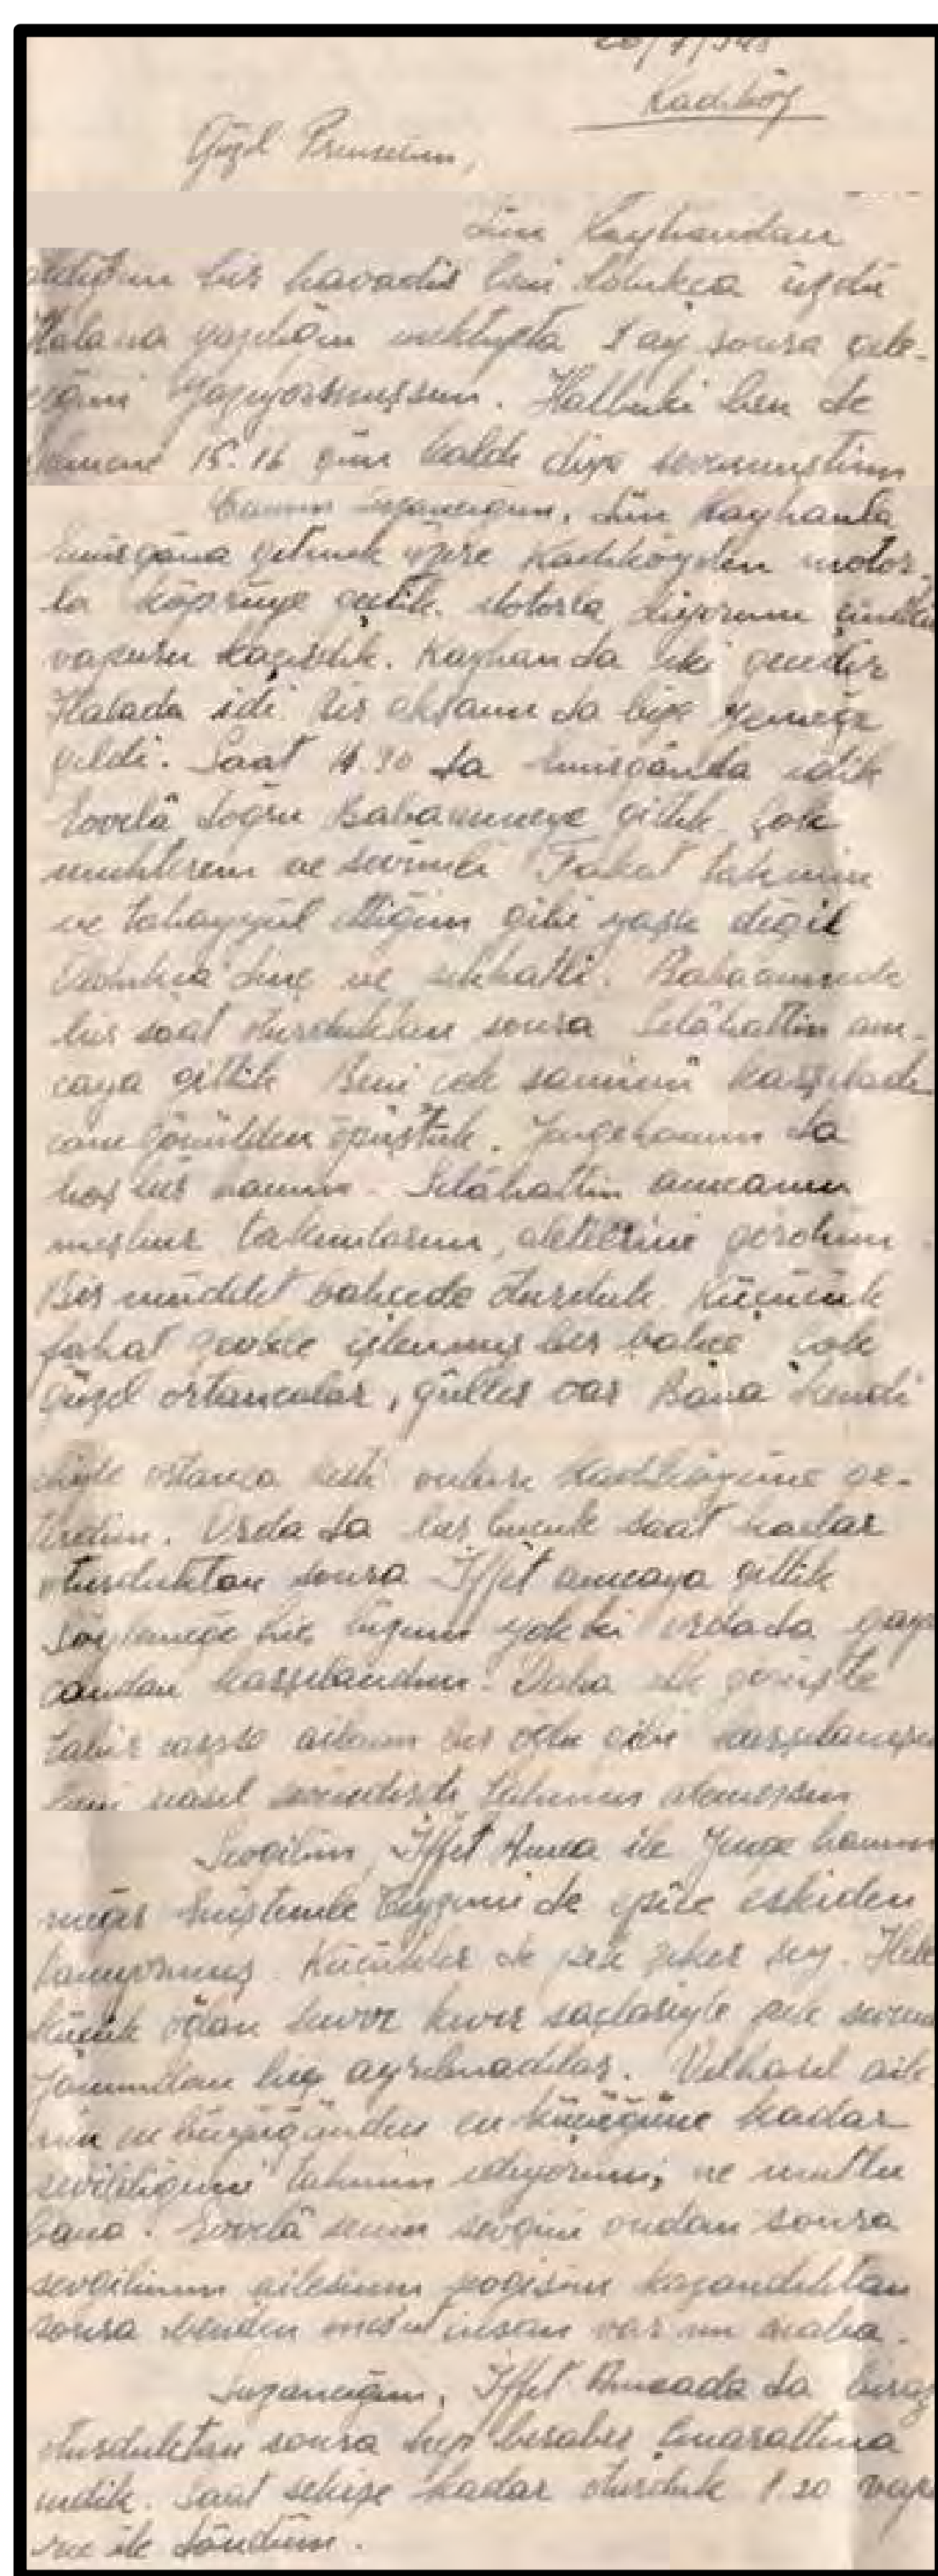 20/7/948
Kadıköy
Güzel Prensesim,
dün Kayhandan
aldığım bir havadis beni oldukça üzdü
Halana yazdığın mektupta 1 ay sonra gele-
ceğini yazıyormuşsun. Halbuki ben de
hemene 15-16 gün kaldı diye sevinmiştim
Canım Suzancığım, dün Kayhanla
Emirgâna gitmek üzere Kadıköyden motor-
la köprüye geçtik. Motorla diyorum çünkü
vapuru kaçırdık. Kayhan da iki gecedir
Halada idi. Bir akşam da bize yemeğe
geldi. Saat 4.30 da Emirgânda idik
Evvelâ doğru Babaanneye gittik. Çok
muhterem ve sevimli. Fakat tahmin
ve tahayyül ettiğim gibi yaşlı değil
oldukça dinç ve sıhhatli. Babaannede
bir saat oturduktan sonra Selâhattin am-
caya gittik Beni çok samimi karşıladı
can gönülden öpüştük. Yengehanım da
hoş bir hanım. Selâhattin amcanın
meşhur takımlarını, aletlerini gördüm.
Bir müddet bahçede oturduk. Küçücük
fakat zevkle işlenmiş bir bahçe çok
güzel ortancalar, güller var Bana kendi
eliyle ortanca kesti onları Kadıköyüne ge-
tirdim. Orda da bir buçuk saat kadar
oturduktan sonra İffet amcaya gittik
Söylemeğe hiç lüzum yok ki orda da gayet
candan karşılandım. Daha ilk görüşte
tabir caizse ailenin bir öğe gibi karşılanışım
beni nasıl sevindirdi tahmin edemezsin
Sevgilim, İffet Amca ile Yenge hanım
meğer Eniştemle Teyzemi de epice eskiden
tanıyormuş. Küçükler de pek şeker şey. Hele
küçük oğlan kıvır kıvır saçlariyle pek sevimli
Yanımdan hiç ayrılmadılar. Velhasıl aile-
nin en büyüğünden en küçüğüne kadar
sevildiğimi tahmin ediyorum, ne mutlu
bana. Evvelâ senin sevgini ondan sonra
sevgilimin ailesinin sevgisini kazandıktan
sonra benden mes'ut insan var mı acaba.
Suzancığım, İffet Amcada da biraz
oturduktan sonra hep beraber Çınaraltına
indik. Saat sekize kadar oturduk 8.20 vapu-
ru ile döndüm.